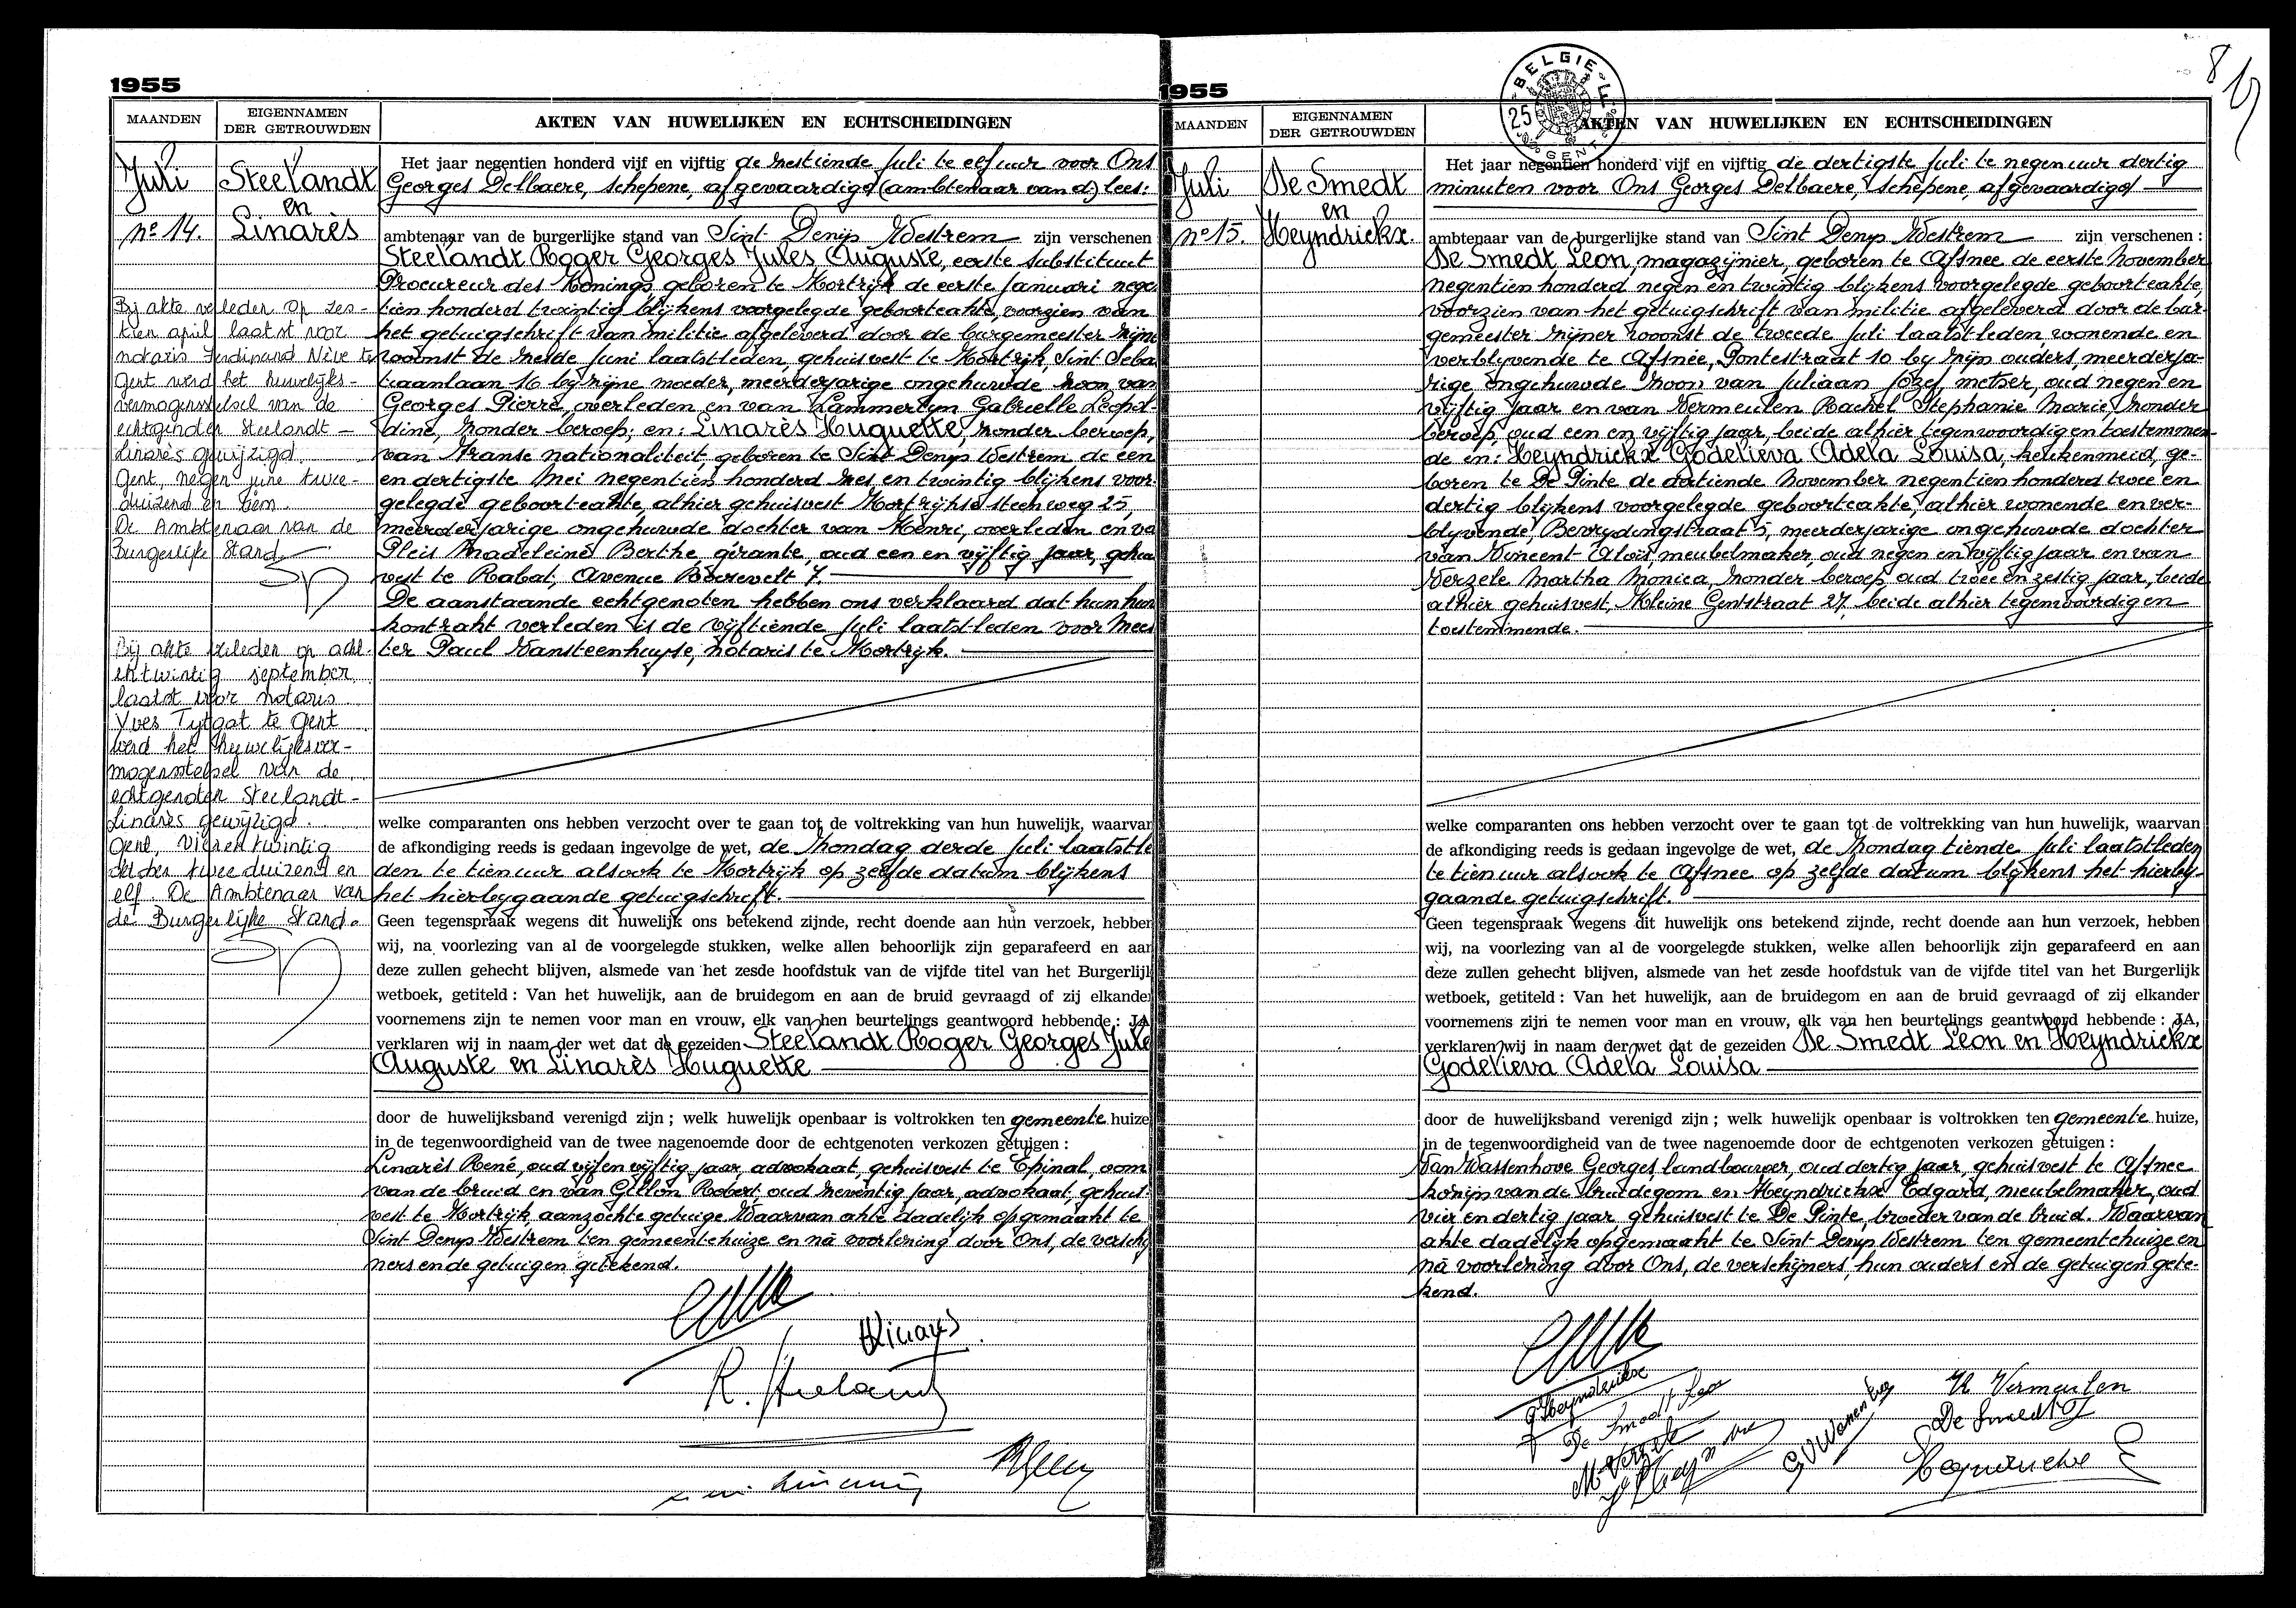 1955
MAANDEN
EIGENNAMEN
DER GETROUWDEN
AKTEN VAN HUWELIJKEN EN ECHTSCHEIDINGEN
Juli
nº 14.
Steelandt
en
Linarès
Bij akte verleden op zes-
tien april laatst voor
notaris Ferdinand Nève te
Gent werd het huwelijks-
vermogensstelsel van de
echtgenoten Steelandt -
Linarès gewijzigd.
Gent, negen juni twee-
duizend en
De Ambtenaar van de
Burgerlijke Stand.
Bij akte verleden op acht-
entwintig september
laatst voor notaris
Yves Tytgat te Gent
werd het huwelijksver-
mogensstelsel van de
echtgenoten Steelandt -
Linarès gewijzigd.
Gent, vierentwintig
oktober tweeduizend en
elf. De Ambtenaar van
de Burgerlijke Stand.
Het jaar negentien honderd vijf en vijftig de zestiende Juli te elf uur voor Ons
Georges Delbaere, schepene, afgevaardigd (ambtenaar van d) lees:
ambtenaar van de burgerlijke stand van Sint Denijs Westrem zijn verschenen
Steelandt Roger Georges Jules Auguste, eerste Substituut
Procureur des Konings geboren te Kortrijk de eerste Januari nege
tien honderd twintig blijkens voorgelegde geboorteakte, voorzien van
het getuigschrift van militie afgeleverd door de burgemeester zijne
woonst de zelde Juni laatstleden, gehuisvest te Kortrijk, Sint Seba
tiaanlaan 16 bij zijne moeder, meerderjarige ongehuwde zoon van
Georges Pierre, overleden en van Lammertyn Gabrielle Leopol-
dine, zonder beroep; en: Linarès Huguette, zonder beroep,
van Franse nationaliteit, geboren te Sint Denijs Westrem de een
en dertigste Mei negentien honderd zes en twintig blijkens voor-
gelegde geboorteakte, alhier gehuisvest Kortrijksesteenweg 25,
meerderjarige ongehuwde dochter van Henri, overleden en va
Pleis Madeleine Berthe, gérante, oud een en vijftig jaar, gehui
vest te Rabat, Avenue Roosevelt 7.
De aanstaande echtgenoten hebben ons verklaard dat hun huw
kontrakt verleden is de vijftiende Juli laatstleden voor Mees
ter Paul Vansteenhuyse, notaris te Kortrijk.
welke comparanten ons hebben verzocht over te gaan tot de voltrekking van hun huwelijk, waarvan
de afkondiging reeds is gedaan ingevolge de wet, de Zondag derde Juli laatstle
den te tien uur alsook te Kortrijk op zelfde datum blijkens
het hierbijgaande getuigschrift.
Geen tegenspraak wegens dit huwelijk ons betekend zijnde, recht doende aan hun verzoek, hebben
wij, na voorlezing van al de voorgelegde stukken, welke allen behoorlijk zijn geparafeerd en aan
deze zullen gehecht blijven, alsmede van het zesde hoofdstuk van de vijfde titel van het Burgerlijk
wetboek, getiteld : Van het huwelijk, aan de bruidegom en aan de bruid gevraagd of zij elkander
voornemens zijn te nemen voor man en vrouw, elk van hen beurtelings geantwoord hebbende : JA
verklaren wij in naam der wet dat de gezeiden Steelandt Roger Georges Jule
Auguste en Linarès Huguette
door de huwelijksband verenigd zijn ; welk huwelijk openbaar is voltrokken ten gemeente huize
in de tegenwoordigheid van de twee nagenoemde door de echtgenoten verkozen getuigen :
Linarès René, oud vijf en vijftig jaar, advokaat, gehuisvest te Epinal, oom
van de bruid en van Gillon Robert, oud zeventig jaar, advokaat, gehuis-
vest te Kortrijk, aanzochte getuige. Waarvan akte dadelijk opgemaakt te
Sint Denijs Westrem ten gemeentehuize en na voorlezing door Ons, de versch
ners en de getuigen getekend.
HLinarès
R. Steelandt
1955
MAANDEN
EIGENNAMEN
DER GETROUWDEN
AKTEN VAN HUWELIJKEN EN ECHTSCHEIDINGEN
BELGIE
25
GENT
8
Juli
nº 15.
De Smedt
en
Heyndrickx.
Het jaar negentien honderd vijf en vijftig de dertigste Juli te negen uur dertig
minuten voor Ons Georges Delbaere, schepene, afgevaardigd
ambtenaar van de burgerlijke stand van Sint Denijs Westrem zijn verschenen :
De Smedt Leon, magazijnier, geboren te Afsnee de eerste November
negentien honderd negen en twintig blijkens voorgelegde geboorteakte,
voorzien van het getuigschrift van militie afgeleverd door de bur-
gemeester zijner woonst de tweede Juli laatstleden, wonende en
verblijvende te Afsnee, Pontestraat 10 bij zijn ouders, meerderja-
rige ongehuwde zoon van Juliaan Jozef, metser, oud negen en
vijftig jaar en van Vermeulen Rachel Stephanie Marie, zonder
beroep, oud een en vijftig jaar, beide alhier tegenwoordig en toestemmen-
de en: Heyndrickx Godelieva Adela Louisa, keukenmeid, ge-
boren te De Pinte de dertiende November negentien honderd twee en
dertig blijkens voorgelegde geboorteakte, alhier wonende en ver-
blijvende, Bevrijdingstraat 5, meerderjarige ongehuwde dochter
van Vincent Aloïs, meubelmaker, oud negen en vijftig jaar en van
Verzele Martha Monica, zonder beroep, oud twee en zestig jaar, beide
alhier gehuisvest, Kleine Gentstraat 27, beide alhier tegenwoordig en
toestemmende.
welke comparanten ons hebben verzocht over te gaan tot de voltrekking van hun huwelijk, waarvan
de afkondiging reeds is gedaan ingevolge de wet, de Zondag tiende Juli laatstleden
te tien uur alsook te Afsnee op zelfde datum blijkens het hierbij-
gaande getuigschrift.
Geen tegenspraak wegens dit huwelijk ons betekend zijnde, recht doende aan hun verzoek, hebben
wij, na voorlezing van al de voorgelegde stukken, welke allen behoorlijk zijn geparafeerd en aan
deze zullen gehecht blijven, alsmede van het zesde hoofdstuk van de vijfde titel van het Burgerlijk
wetboek, getiteld : Van het huwelijk, aan de bruidegom en aan de bruid gevraagd of zij elkander
voornemens zijn te nemen voor man en vrouw, elk van hen beurtelings geantwoord hebbende : JA,
verklaren wij in naam der wet dat de gezeiden De Smedt Leon en Heyndrickx
Godelieva Adela Louisa
door de huwelijksband verenigd zijn ; welk huwelijk openbaar is voltrokken ten gemeente huize,
in de tegenwoordigheid van de twee nagenoemde door de echtgenoten verkozen getuigen :
Van Wassenhove Georges landbouwer, oud dertig jaar, gehuisvest te Afsnee
kozijn van de bruidegom en Heyndrickx Edgard, meubelmaker, oud
vier en dertig jaar gehuisvest te De Pinte, broeder van de bruid. Waarvan
akte dadelijk opgemaakt te Sint Denijs Westrem ten gemeentehuize en
na voorlezing door Ons, de verschijners, hun ouders en de getuigen gete-
kend.
G Heyndrickx
De Smedt Leon
M Verzele
R Vermeulen
De Smedt J
Heyndrickx E